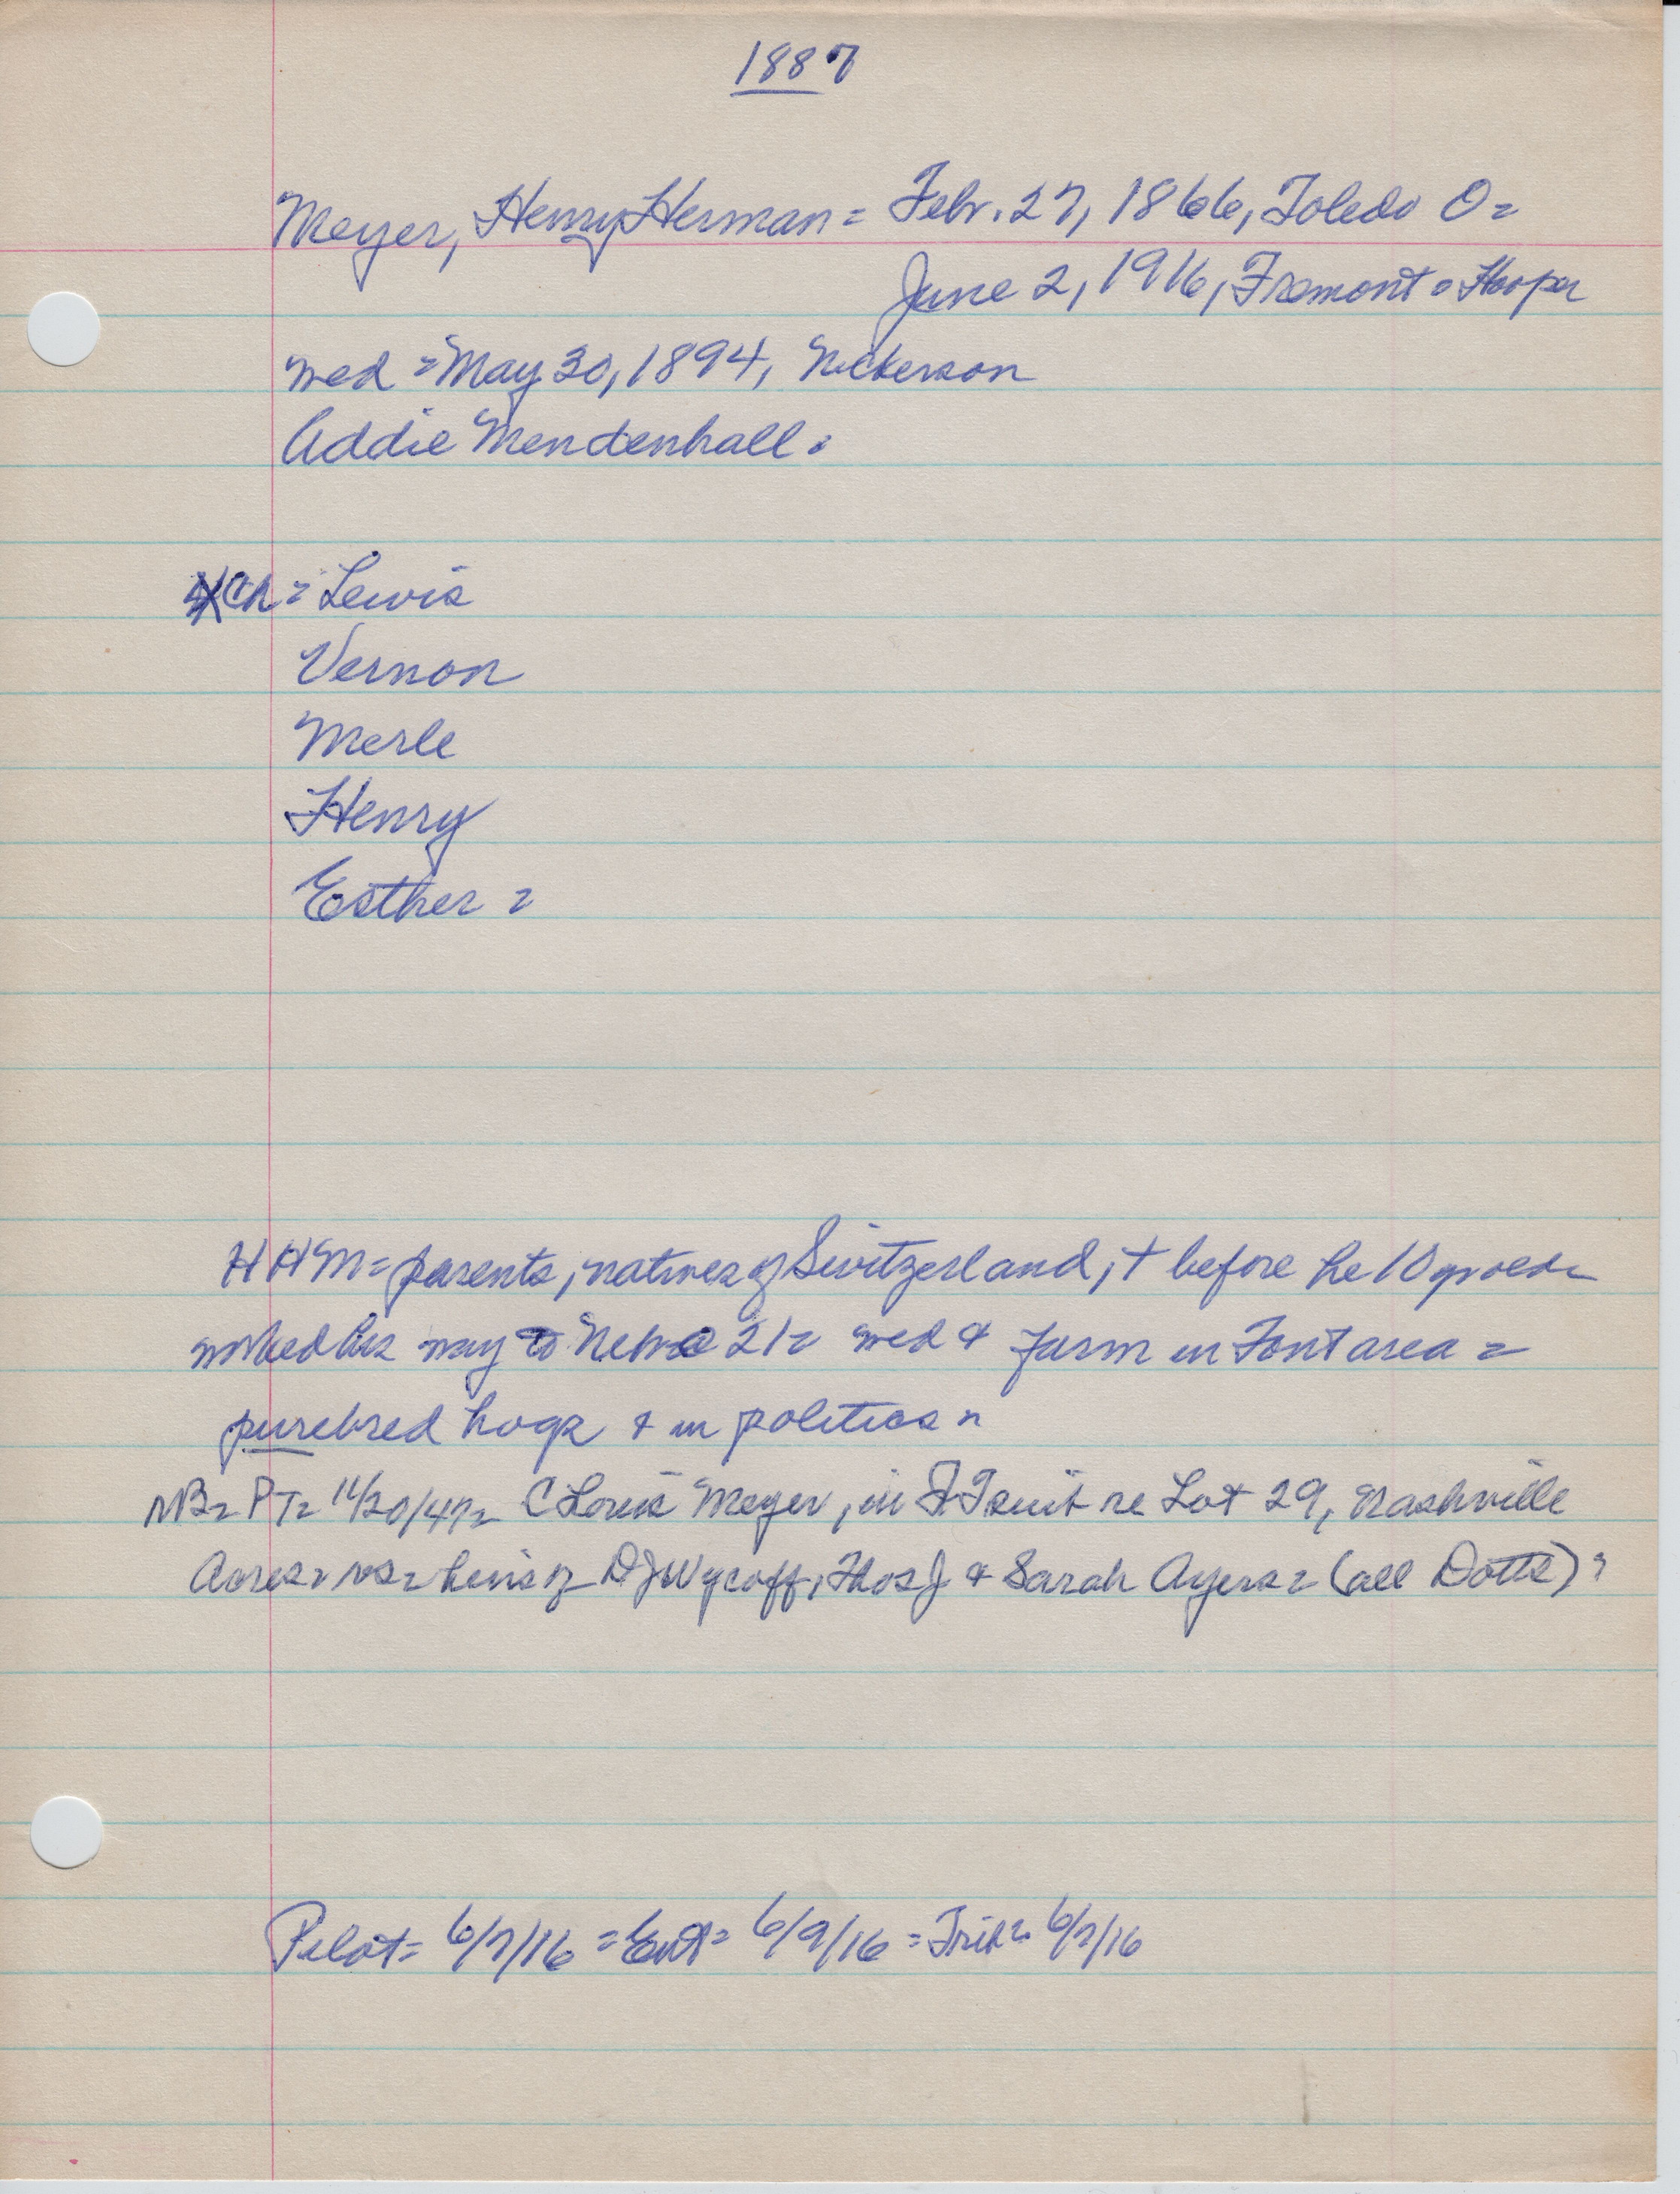 1887
Meyer, Henry Herman = Febr. 27, 1866, Toledo O =
June 2, 1916, Fremont = Hooper
wed = May 30, 1894, Nickerson
Addie Mendenhall =
Ch = Lewis
Vernon
Merle
Henry
Esther =
HHM = parents, natives of Switzerland, + before he 10
worked his way to Nebr @ 21 = wed & farm in Font area =
purebred hogs & in politics =
NB = PT = 11/20/47 = C Louis Meyer, in FT suit re Lot 29, Nashville
Acres = vs = heirs of D J Wycoff, Thos J & Sarah Ayers = (all Dotts) =
Pilot = 6/7/16 = Ent = 6/9/16 = Trib = 6/2/16